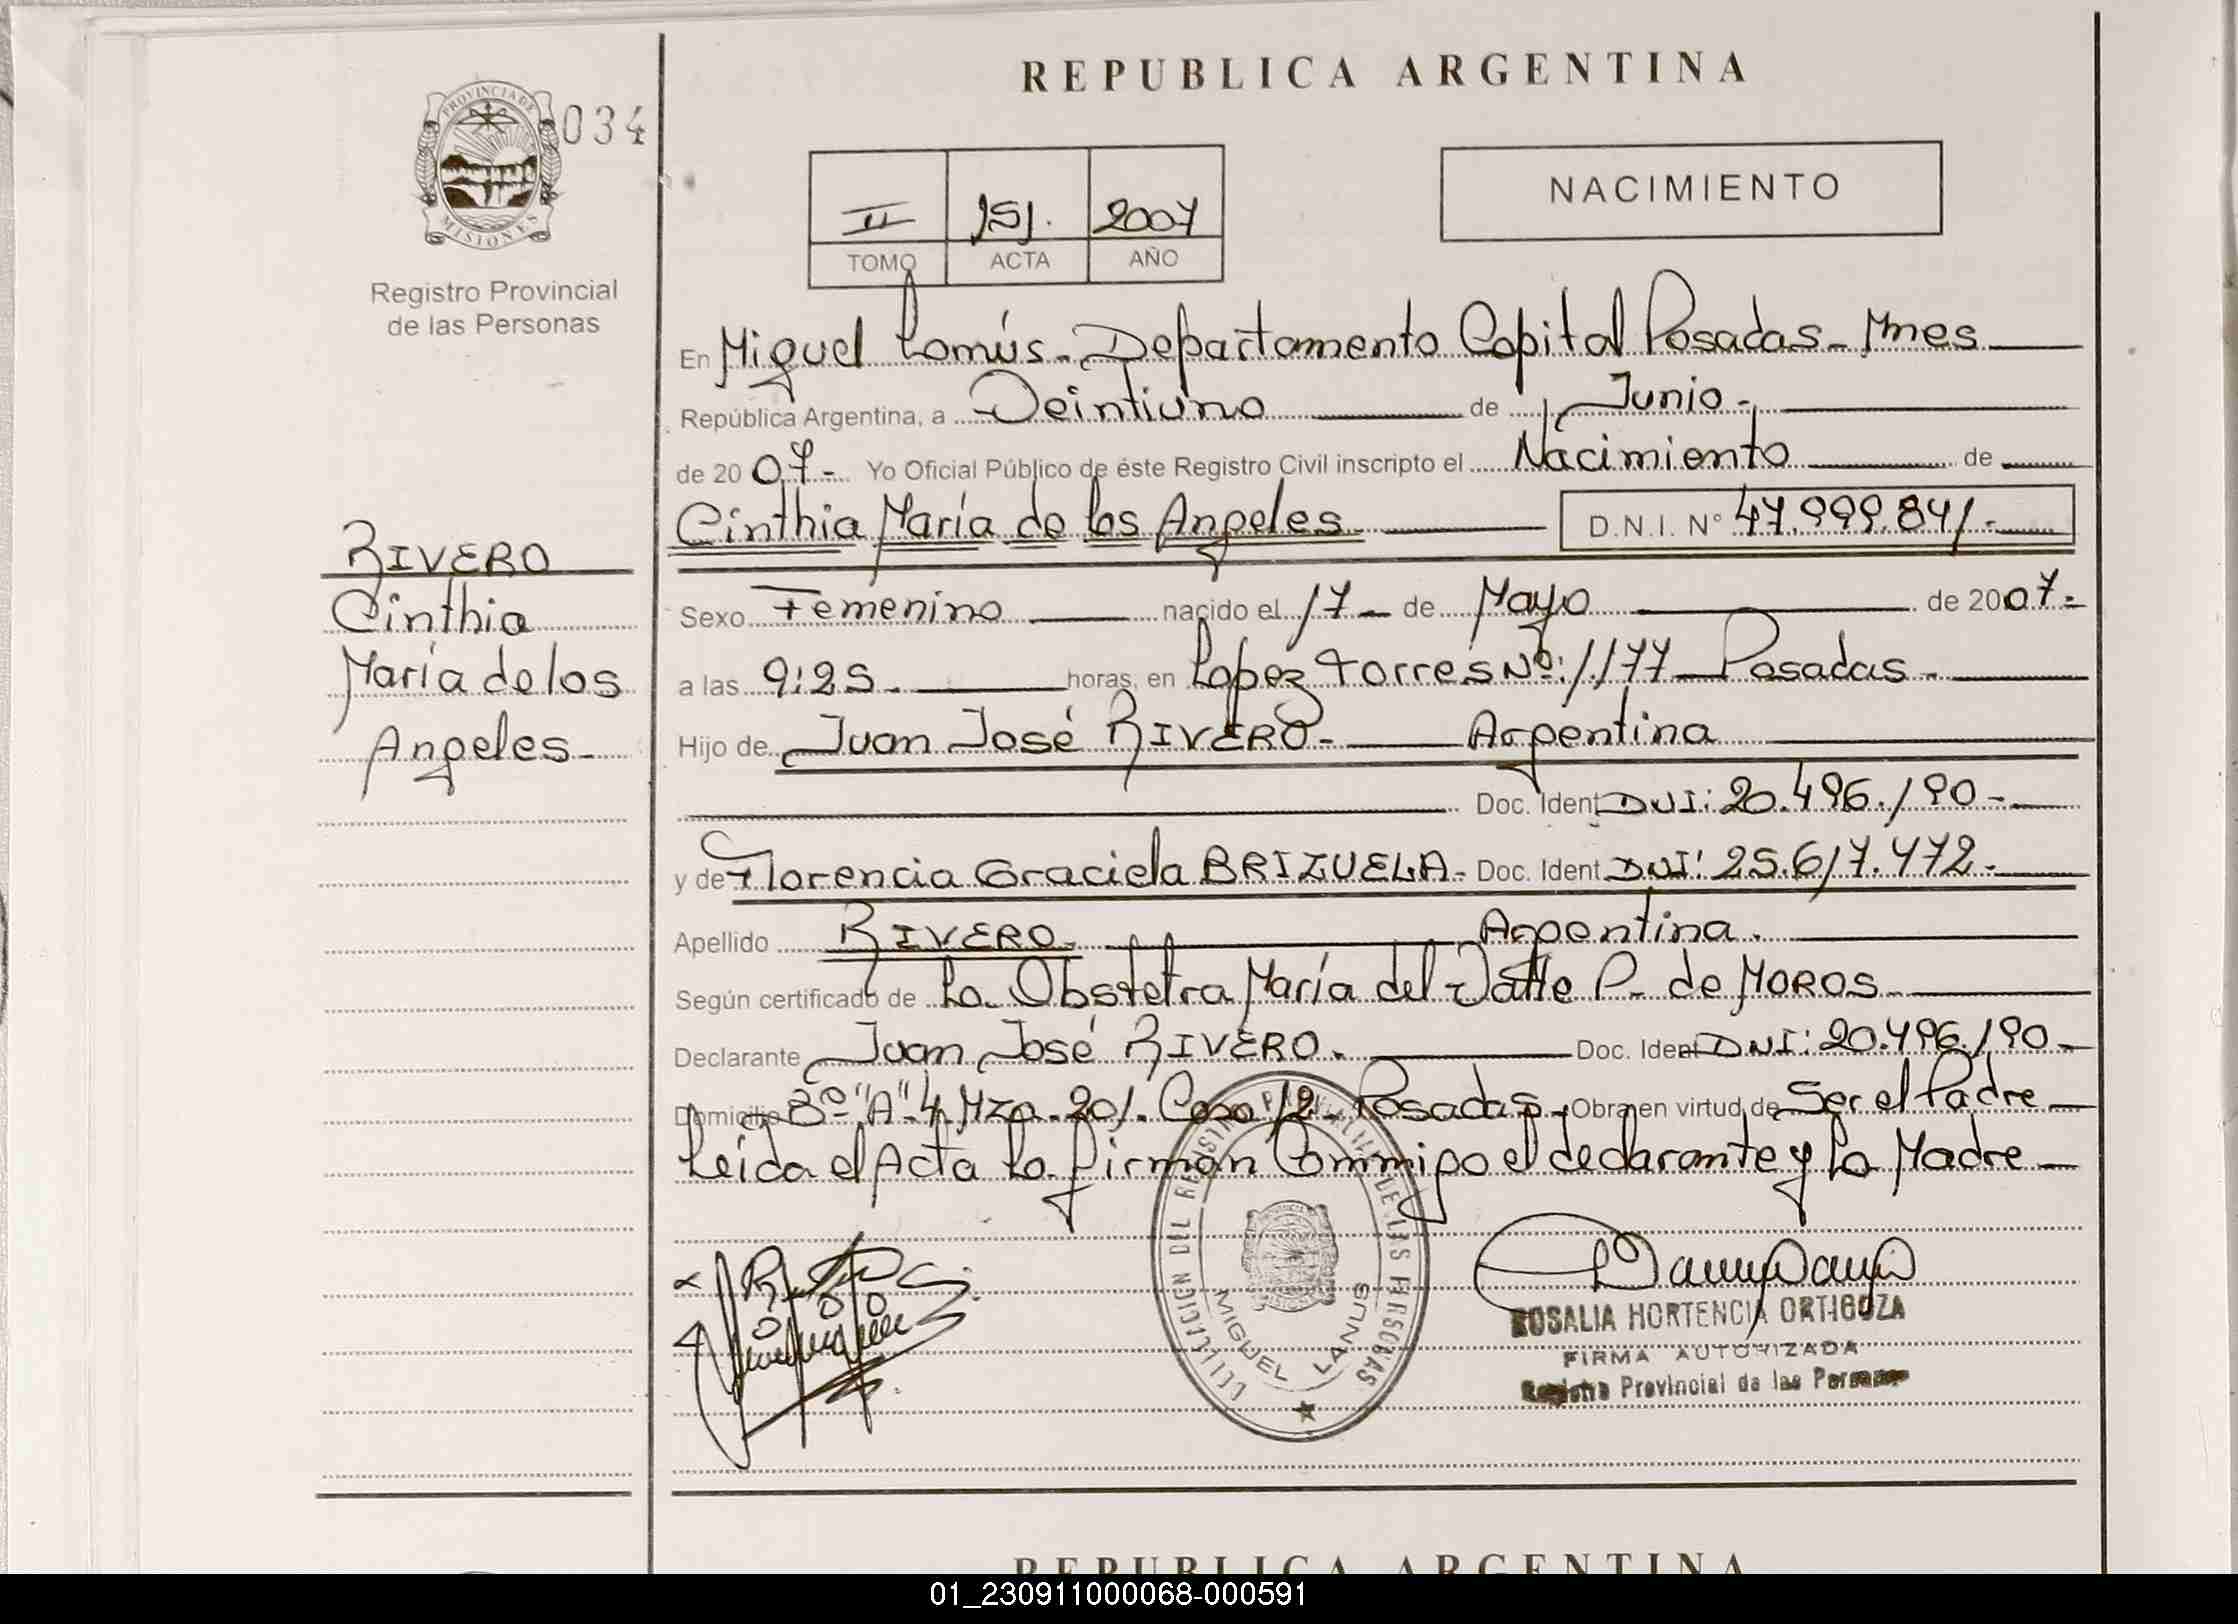 REPUBLICA ARGENTINA
PROVINCIA DE
MISIONES
034
Registro Provincial
de las Personas
II 151. 2007
TOMO ACTA AÑO
NACIMIENTO
En Miguel Lanús - Departamento Capital Posadas - Mnes
República Argentina, a Veintiuno de Junio -
de 2007 - Yo Oficial Público de éste Registro Civil inscripto el Nacimiento de
Cinthia María de los Angeles D.N.I. N° 47.999.841 -
RIVERO
Cinthia
María de los
Angeles -
Sexo Femenino nacido el 17 - de Mayo de 2007 -
a las 9:25 - horas, en Lopez Torres Nº: 1.177 - Posadas -
Hijo de Juan José RIVERO - Argentina
Doc. Ident DNI: 20.496.190 -
y de Florencia Graciela BRIZUELA - Doc. Ident DNI: 25.617.472 -
Apellido RIVERO - Argentina.
Según certificado de La Obstetra María del Valle P. de MOROS -
Declarante Juan José RIVERO - Doc. Ident DNI: 20.496.190 -
Domicilio Bº "A" 4 Mza. 201. Casa 12 - Posadas - Obra en virtud de Ser el Padre -
Leída el Acta la firman Conmigo el declarante y la Madre -
MIGUEL LANUS
ROSALIA HORTENCIA ORTIGOZA
FIRMA AUTORIZADA
Registro Provincial de las Personas
REPUBLICA ARGENTINA
01_230911000068-000591